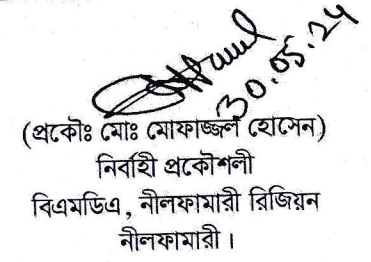 30.05.24
(প্রকৌঃ মোঃ মোফাজ্জল হোসেন)
নির্বাহী প্রকৌশলী
বিএমডিএ, নীলফামারী রিজিয়ন
নীলফামারী।